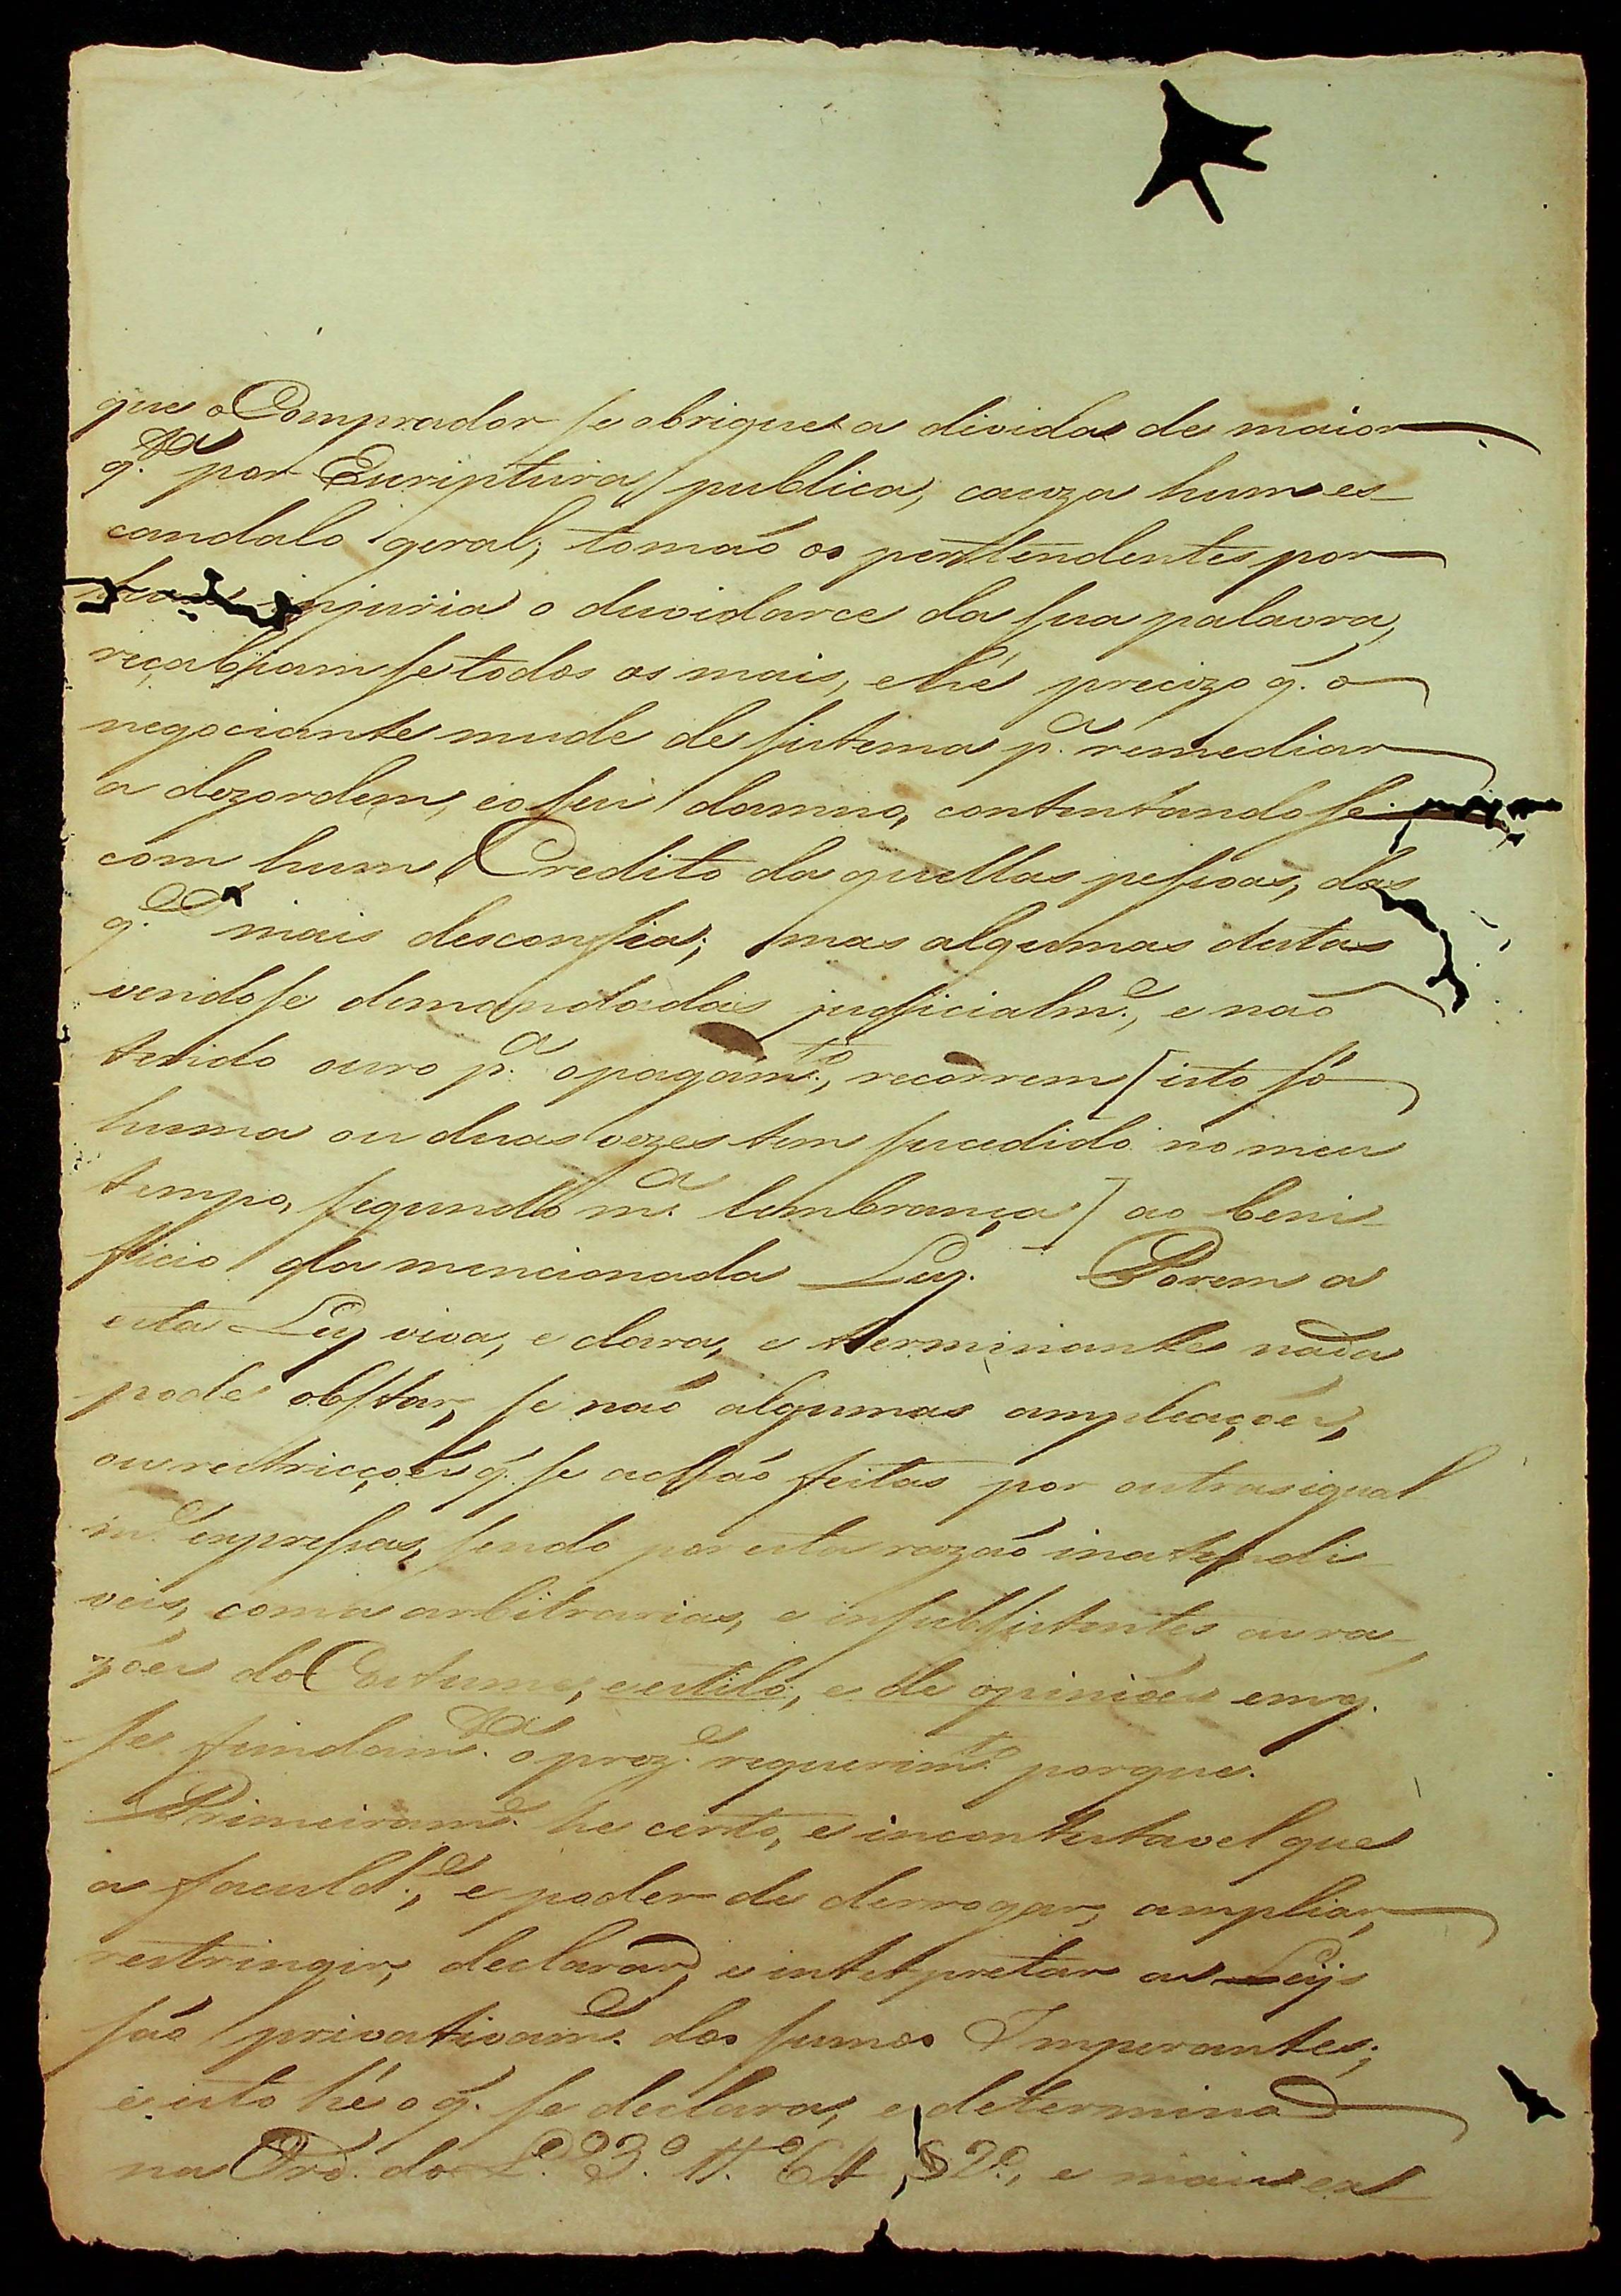 que o Comprador se obrigue a divida de maior
q.tia por Escriptura publica, cauza hum es-
candalo geral, tomaõ os pertendentes por
injuria o duvidarce da sua palavra,
se todos os mais, e hé precizo q. o
negociante mude de sistema p.a remediar
a dezordem, e o seu damno, contentandose
com hum Credito daquellas pessoas, das
q.es mais desconfia; mas algumas destas
vendose demandadas judicialm.e, e naõ
tendo ouro p.a o pagam.to, recorrem [isto só
huma ou duas vezes tem sucedido no meu
tempo, segundo m.a lembrança] ao beni-
ficio da mencionada Ley. Porem a
esta Ley viva, e clara, e terminante nada
pode obstar, se naõ algumas ampliaçoẽs,
ou restricçoẽs q. se achaõ feitas por outras igual
m.e expressas, sendo por esta razaõ inatendi-
veis, como arbitrarias, e insubsistentes as ra-
zoẽs do Costume, e estilo, e de opinioẽs em q.
se fundam.ta o prez.e requerim.to porque.
Primeiram.e he certo, e incontestavel que
a faculd.e, e poder de derrogar, ampliar,
restringir, declarar, e interpretar as Leys
saõ privativam.e dos sumos Imperantes;
e isto hé o q. se declara, e determina
na Ord. do L.o 3.o tt.o 64 § 2.o, e mais ex